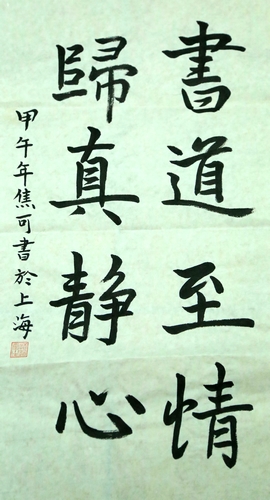 書道至情
歸真静心
甲午年焦可書於上海